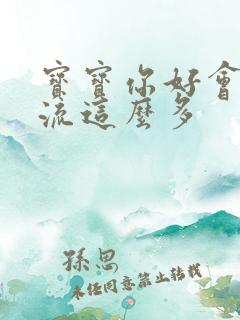 寶寶你好會
流這麼多
孫思
未經同意禁止轉載